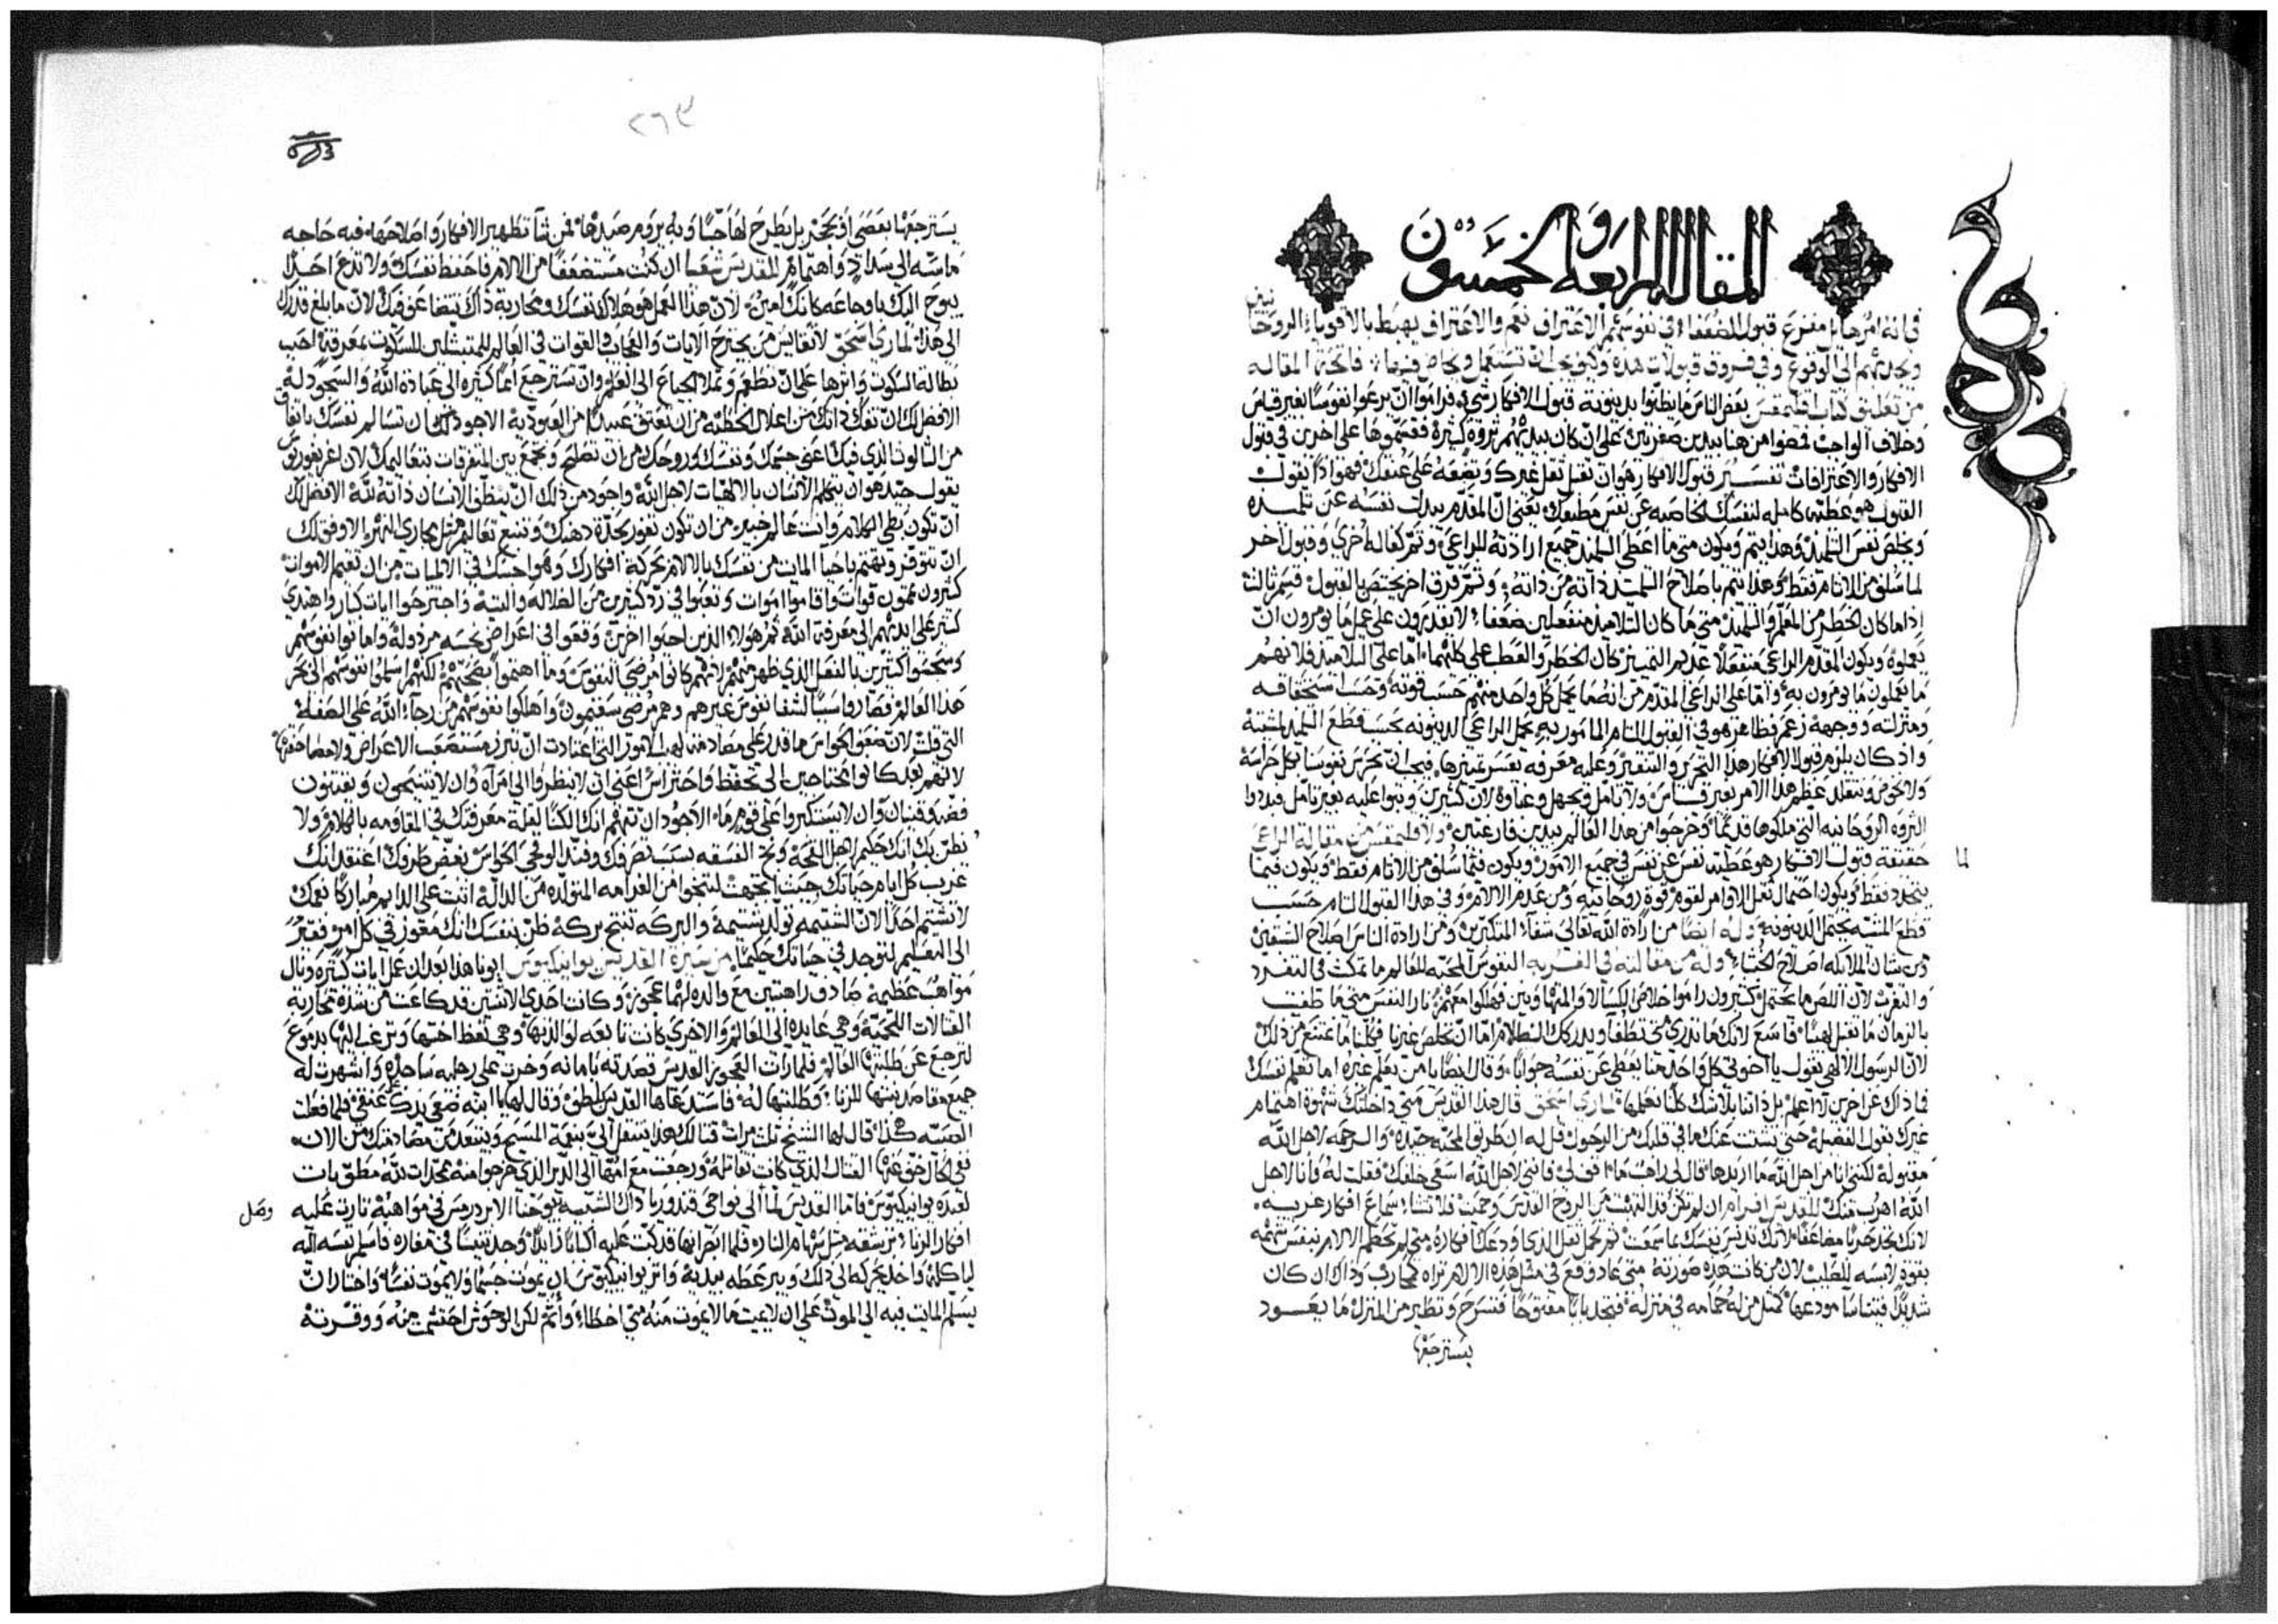 المقالة الرابعة والخمسون
في انه امر هايل مفزع قبول الضعفاء في نفوسهم الاعتراف نعم والاعتراف يهبط بالاقوياء الروحانيين
ويحدرهم الى الوقوع وفي فروق قبولات هذه وكيف يجب ان تستعمل فاتحة المقاله
من تعليق كتاب اقليمقس بعض الناس ما يظنوا بدينونة قبول الافكار شي فراموا ان يرعوا نفوسا بغير قياس
وخلاف الواجب فمضوا من هنا بيدين صفرتين على ان كان بيديهم ثروة كثيرة فقسموها على اخرين في قبول
الافكار والاعترافات تفسير قبول الافكار هو ان تقبل ثقل غيرك وتضعه على عنقك فهو اذا يقول
القبول هو عطية كامله لنفسك الخاصه عن نفس مطيعك يعني ان المقدم يبذل نفسه عن تلميذه
ويخلص نفس التلميذ وهذا يتم ويكون متى ما اعطى التلميذ جميع ارادته للراعي وثم كفاله اخرى وقبول اخر
لما سلف من الاثام فقط وهذا يتم باصلاح التلميذ ذاته من ذاته وثم فرق اخر يختص بالقبول قسم ثالث
اذا ما كان الخطر من المعلم والتلميذ متى ما كان التلاميذ منفعلين ضعفا لا يقدرون على عمل ما يومرون ان
يعملوه ويكون المقدم الراعي منفعلا عديم التمييز كان الخطر والعطب على كلتهما اما على التلاميذ فلانهم
ما يعملون ما يومرون به واما على الراعي المقدم من انه ما يحمل كل واحد منهم حسب قوته وحسب استحقاقه
ومنزلته ووجهة زعم فظاهر هو في القبول التام المامور به يحمل الراعي الدينونه بحسب قطع التلميذ لمشيته
واذ كان يلزم قبول الافكار هذا التحرر والتفتيش وعليه معرفه يعسر تمييزها فيجب ان نحرس نفوسنا بكل حراسة
ولا نخوض ونتقلد عظم هذا الامر بغير قياس ولا تامل وبجهل وغباوه لان كثيرين وثبوا عليه بغير تامل فبددوا
الثروه الروحانيه التي ملكوها قديما وخرجوا من هذا العالم بيدين فارغتين ولاقليمقس من مقالة الراعي
حقيقة قبول الافكار هو عطية نفس عن نفس في جميع الامور ويكون فيما سلف من الاثام فقط ويكون فيما
لما
يتجدد فقط ويكون احتمال ثقل الاوامر لقوم قوة روحانيه ومن عدم الالام وفي هذا القبول التام حسب
قطع المشيه يحتمل الدينونة وله ايضا من ارادة الله تعالى شفاء المتكبرين ومن ارادة الناس اصلاح الشبقين
ومن شان الملايكه اصلاح الخبثاء وله من مقالته في الغربه النفوس المحبه للعالم ما تمكث في التفرد
والتغرب لان اللص ما يحتمل كثيرون راموا خلاص الكسالا والمتهاونين فهلكوا معهم نار النفس متى ما طفيت
بالزمان ما تقبل لهيبا فاسع لانك ما تدري متى تطفا ويدركك الظلام اما ان نخلص غيرنا فكلنا ما نمتنع من ذلك
لان الرسول الالهي يقول يا اخوتي كل واحد منا يعطي عن نفسه جوابا وقال ايضا يا من يعلم غيره اما تعلم نفسك
فاذاك عن اخرين لا اعلم بل ذاتنا بلا شك كلنا نعلمها لماري اسحق قال هذا القديس متى داخلتك شهوة اهتمام
غيرك بقول الفضيلة حتى تشتت عنك ما في قلبك من الرجون قل له ان طريق المحبه جيدة والرحمه لاهل الله
مقبولة لكنني انا من اجل الله ما اريدها قال لي راهب ما اقف لي فانني لاجل الله اسعى خلفك فقلت له وانا لاجل
الله اهرب منك للقديس افرام ان لم تكن قد التهبت من الروح القدس وحميت فلا تشاء سماع افكار غريبه
لانك تجد حربا مضاعفا لانك تدنس نفسك بما سمعت ثم تحمل ثقل الذي اودعك افكاره متى لم تحطم الالام بنفس شهمه
بقوة لابسه للصلب لان من كانت هذه صورته متى عاد وقع في مثل هذه الالام تراه يحارب وذاك ان كان
شديدا فيتناسا مودعها كمثل من له حمامه في منزله فتجد بابا مفتوحا فتسرح وتطير من المنزل ما يعود
يسترجعها
٢٦٣
يسترجعها بعضى او بحجر بل يطرح لها حبا وبه يروم صيدها فمن ثنا تطهير الافكار واصلاحها فيه حاجه
ماسه الى سداد واهتمام للقديس شعيا ان كنت مستضعفا من الالام فاحفظ نفسك ولا تدع احدا
يبوح اليك باوجاعه كانك امين لان هذا العمل هو هلاك نفسك ومحاربة ذاك تتضاعف فيك لان ما بلغ قدرك
الى هذا لماري اسحق لا تقايس من يجترح الايات والعجايب والقوات في العالم للمتبتلين للسكوت بمعرفة احب
بطالة السكوت واثرها على ان تطعم وتملا الجياع الى العلم وان تسترجع امما كثيره الى عبادة الله والسجود له
الافضل لك ان تفك ذاتك من اغلال الخطيه من ان تعتق عبيدا من العبوديه الاجود لك ان تسالم نفسك باتفاق
من الثالوث الذي فيك اعني جسمك ونفسك وروحك من ان تصلح وتجمع بين المتفرقات بتعاليمك لان اغريغوريوس
يقول جيد هو ان يتكلم الانسان بالالهيات لاجل الله واجود من ذلك ان ينظف الانسان ذاته لله الافضل لك
ان تكون بطي الكلام وانت عالم خبير من ان تكون تفور بحدة ذهنك وتنبع تعاليم مثل مجاري النهر الاوفق لك
ان تتوفر وتهتم باحيا المايت من نفسك بالالام بحركة افكارك وهو احسنك في الالهيات من ان تقيم الاموات
كثيرون يعملون قوات واقاموا اموات وتعبوا في رد كثيرين من الضلاله والتيه واجترحوا ايات كبار واهتدى
كثير على ايديهم الى معرفة الله ثم هولاء الذين احيوا اخرين وقعوا في اعراض نجسه مرذوله واماتوا نفوسهم
وسجسوا كثيرين بالفعل الذي ظهر منهم لانهم كانوا مرضى النفوس وما اهتموا بصحتهم لكنهم اسلموا نفوسهم الى بحر
هذا العالم فصاروا سببا لشفا نفوس غيرهم وهم مرضى سقيمون واهلكوا نفوسهم من رجاء الله على الصفة
التي قلت لان ضعف الحواس ما قدر على مصادمة لهيب الامور التي اعتادت ان تبرز مستصعب الاعراض
لانهم بعد كانوا محتاجين الى تحفظ واحتراس اعني ان لا ينظروا الى امراه وان لا يتنيحون ويقتنون
فضه وقنيان وان لا يستكبروا على قوم ما الاجود ان تتهم انك الكنا لقلة معرفتك في المقاومه بالكلام ولا
يظن بك انك حكيم
غريب كل ايام حياتك حيث اتجهت لتنجوا من الغرامه المتولده من الداله اثبت على الدايم مباركا فمك
لا تشتم احدا لان الشتيمه تولد شتيمه والبركه تنتج بركه ظن بنفسك انك معوز في كل امر فقير
الى التعليم لتوجد في حياتك حكيما من سيرة القديس بوانيكيوس ابونا هذا بعد ان عمل ايات كثيره ونال
مواهب عظيمة صادف راهبتين مع والده لهما عجوزه وكانت احدى الاثنتين قد كاعت من شدة محاربة
القتالات اللحمية وهي عايده الى العالم والاخرى كانت تابعه لوالدتها وهي تعظ اختها وترغب اليها بدموع
لترجع عن طلبتها العالم فلما رات العجوز القديس قصدته بامانه وخرت على رجليه ساجده واشهرت له
جميع مقاصد بنتها للزنا وطلبتها له فاستدعاها القديس بلطف وقال لها يا ابنه ضعي يدك على عنقي فلما فعلت
الصبيه هكذا قال لها الشيخ ثلث مرات قتالك هذا ينتقل الي بنعمة المسيح ويبتعد من مصادمتك من الان
ففي الحال خف عنها القتال الذي كانت تقاتله ورجعت مع امها الى الدير الذي خرجوا منه ممجدات لله مطوبات
لعبده بوانيكيوس فاما القديس لما اتى نواحي قندوريا ذاك الشبيه بيوحنا الابردرمس في مواهبه ثارت عليه
وصل
افكار الزنا ترشقه مثل سهام النار فلما ابصر انها قد كثت عليه اكبابا زايدا وجد تنينا في مغاره فاسلم نفسه اليه
لياكله واخذ يحركه الى ذلك ويبر عطه بيديه واثر بوانيكيوس ان يموت جسما ولا يموت نفسا واختار ان
يسلم المايت فيه الى الموت على ان لا يميت ما لا يموت منه متى اخطا واثم لكن الوحوش احتشمت منه ووقرته